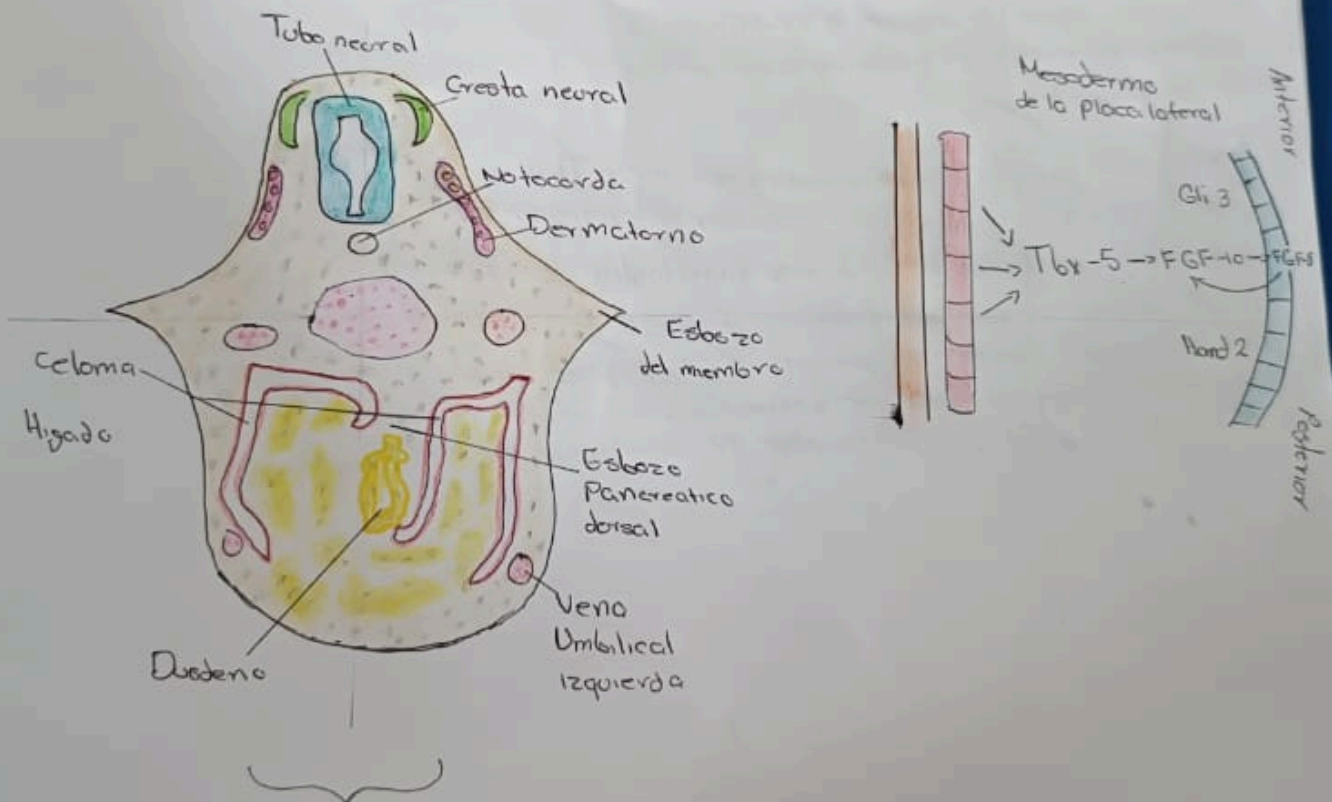 Tubo neural
Cresta neural
Notocorda
Dermatomo
Esbozo
del membro
Celoma
Higado
Esbozo
Pancreatico
dorsal
Vena
Umbilical
izquierda
Duodeno
Mesodermo
de la placa lateral
Anterior
Gli 3
Tbx-5 → FGF-10 → FGF-8
Hand 2
Posterior